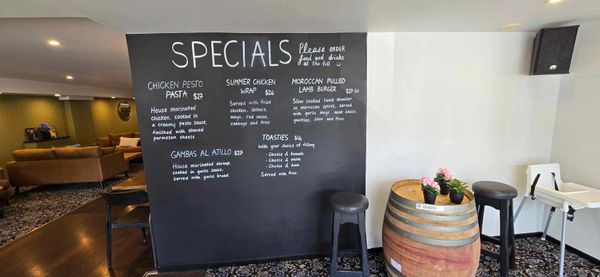 SPECIALS
Please ORDER
food and drinks
at the till
CHICKEN PESTO
PASTA $27
House marinated
chicken, cooked in
a creamy pesto sauce,
finished with shaved
parmesan cheese
SUMMER CHICKEN
WRAP $24
Served with fried
chicken, lettuce,
mayo, red onion,
cabbage and fries
MOROCCAN PULLED
LAMB BURGER
Slow cooked lamb shoulder
in moroccan spices, served
with garlic mayo,
slaw and fries
GAMBAS AL AJILLO $29
House marinated shrimp,
cooked in garlic sauce,
served with garlic bread
TOASTIES $14
With your choice of filling
- Cheese & tomato
- Cheese & onion
- Cheese & ham
Served with fries